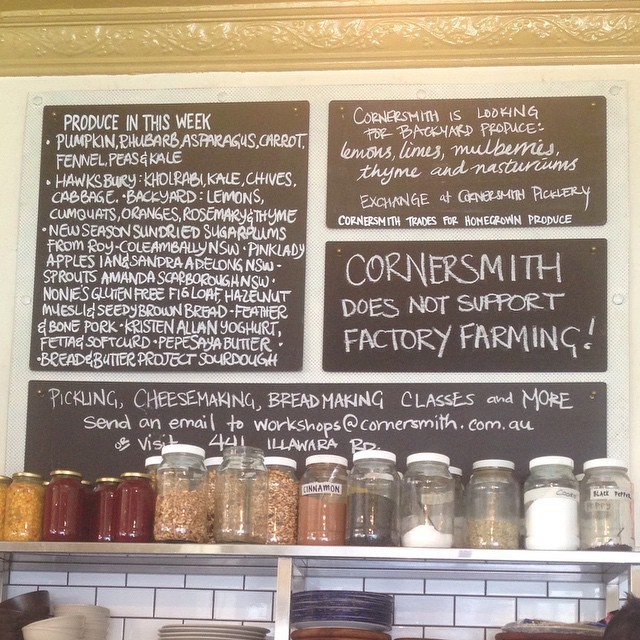 PRODUCE IN THIS WEEK
• PUMPKIN, RHUBARB, ASPARAGUS, CARROT,
FENNEL, PEAS & KALE
• HAWKSBURY: KHOLRABI, KALE, CHIVES,
CABBAGE. • BACKYARD: LEMONS,
CUMQUATS, ORANGES, ROSEMARY & THYME
• NEW SEASON SUNDRIED SUGARPLUMS
FROM ROY - COLEAMBALLY NSW • PINKLADY
APPLES IAN & SANDRA ADELONG NSW •
SPROUTS AMANDA SCARBOROUGH NSW •
NONIE'S GLUTEN FREE FIG LOAF, HAZELNUT
MUESLI & SEEDY BROWN BREAD • FEATHER
& BONE PORK • KRISTEN ALLAN YOGHURT,
FETTA & SOFT CURD • PEPE SAYA BUTTER •
• BREAD & BUTTER PROJECT SOURDOUGH
CORNERSMITH IS LOOKING
FOR BACKYARD PRODUCE:-
lemons, limes, mulberries,
thyme and nasturtiums
EXCHANGE at CORNERSMITH PICKLERY
CORNERSMITH TRADES FOR HOMEGROWN PRODUCE
CORNERSMITH
DOES NOT SUPPORT
FACTORY FARMING!
PICKLING, CHEESEMAKING, BREADMAKING CLASSES and MORE
Send an email to workshops@cornersmith.com.au
OR Visit 441 ILLAWARA RD.
CINNAMON
BLACK PEPPER